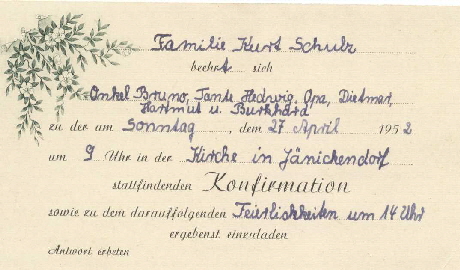 Familie Kurt Schulz
beehrt sich
Onkel Bruno, Tante Hedwig, Opa, Dietmar,
Hartmut u. Burkhard
zu der am Sonntag, dem 27 April 1952
um 9 Uhr in der Kirche in Jänickendorf
stattfindenden Konfirmation
sowie zu dem darauffolgenden Feierlichkeiten um 14 Uhr
ergebenst einzuladen
Antwort erbeten